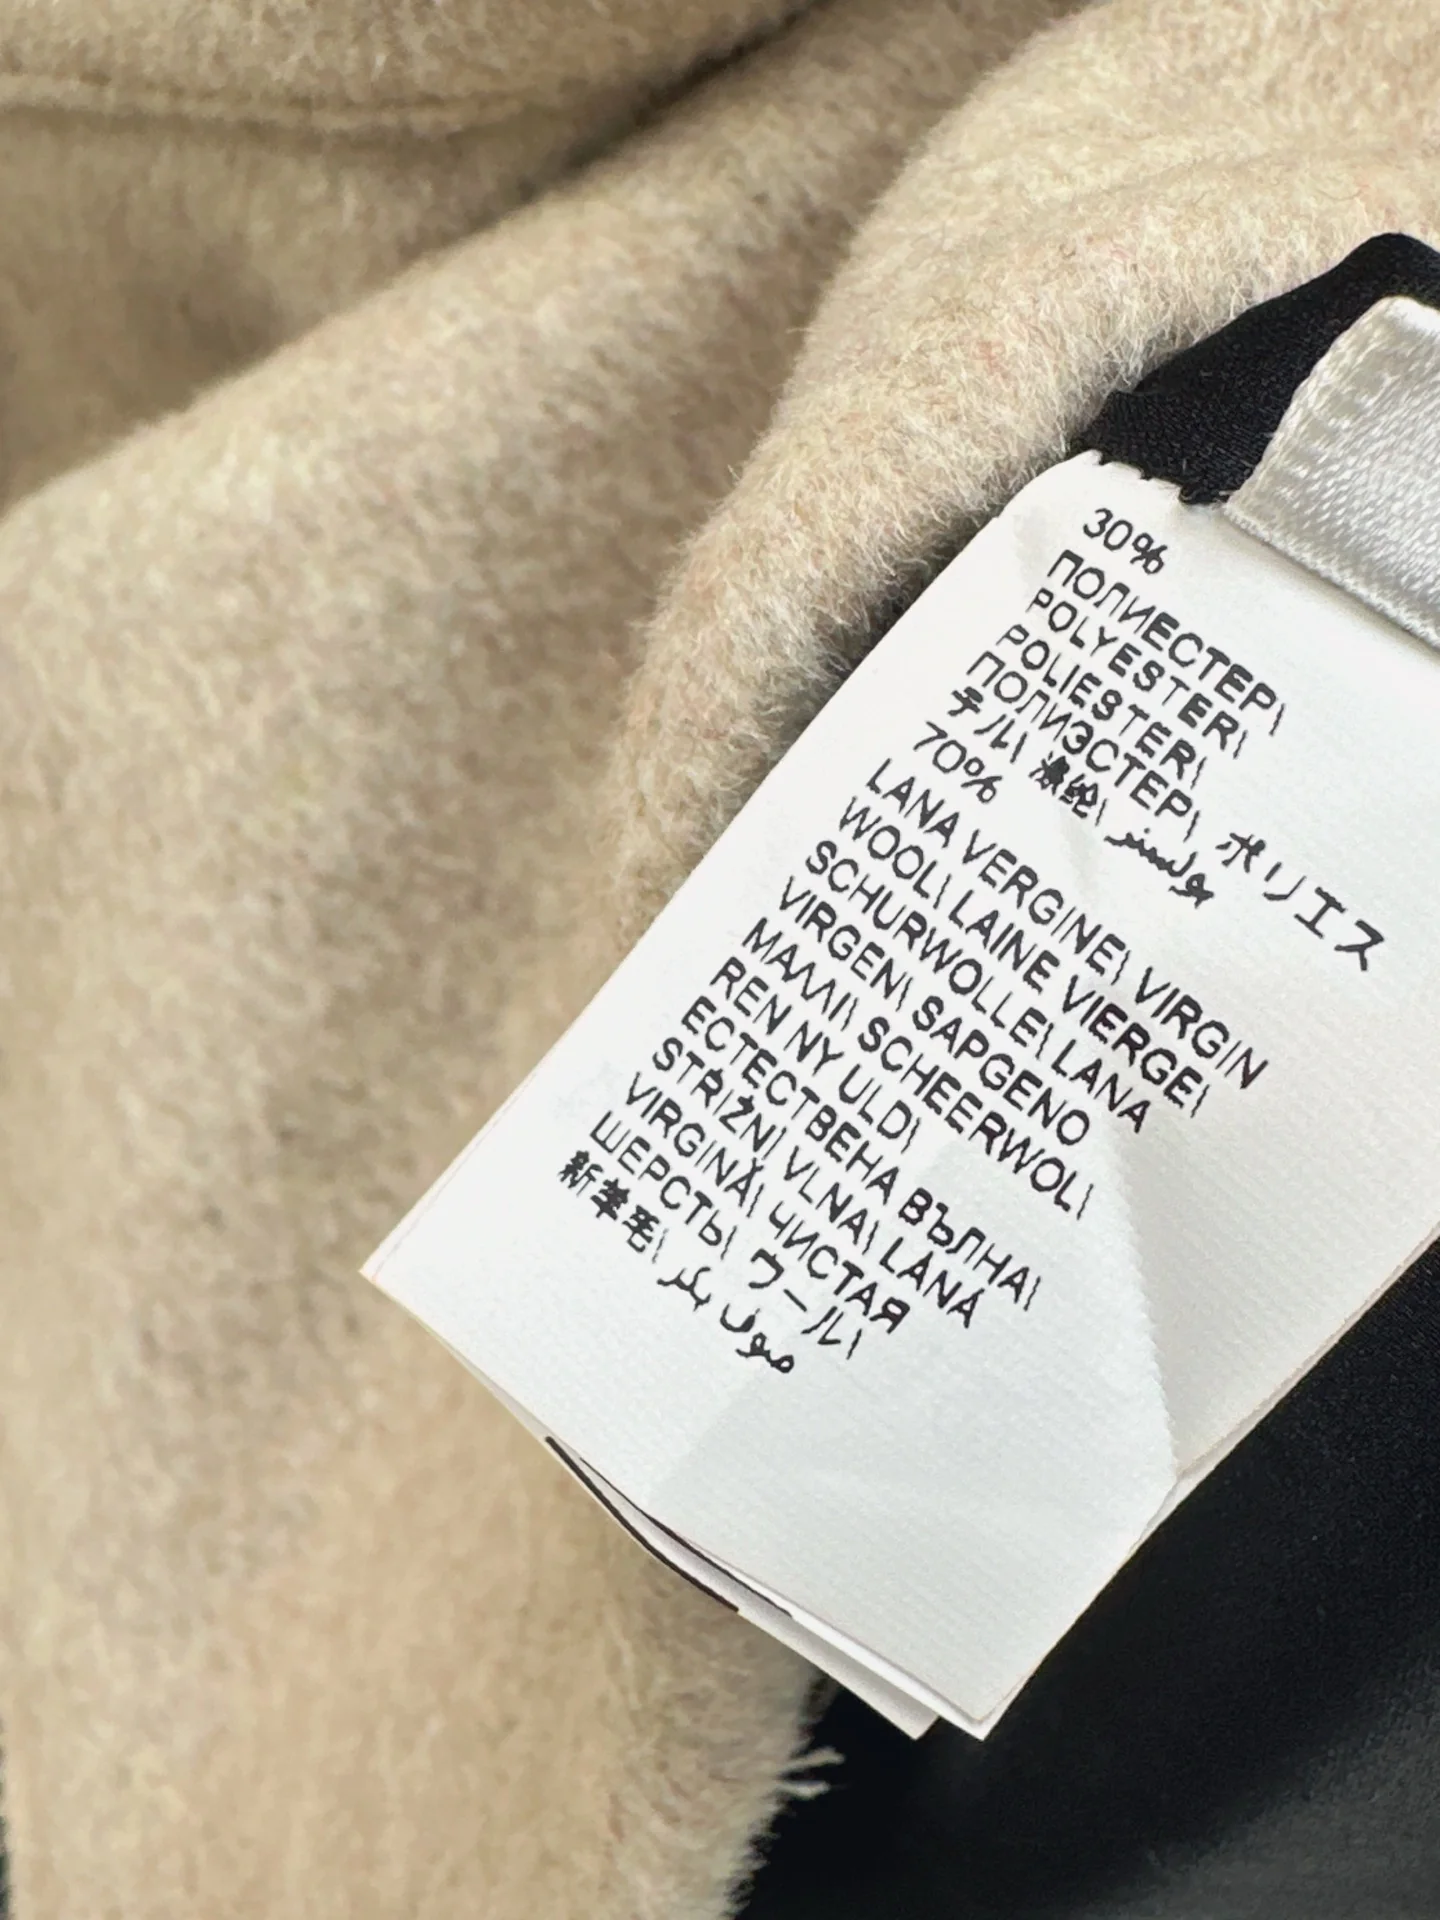 30%
ПОЛИЕСТЕР\
POLYESTER\
POLIESTER\
ПОЛИЭСТЕР\ ポリエス
テル\ 涤纶\ بولستر
70%
LANA VERGINE\ VIRGIN
WOOL\ LAINE VIERGE\
SCHURWOLLE\ LANA
VIRGEN\ SAPGENO
ΜΑΛΛΙ\ SCHEERWOL\
REN NY ULD\
ЕСТЕСТВЕНА ВЪЛНА\
STŘIŽNÍ VLNA\ LÂNĂ
VIRGINĂ\ ЧИСТАЯ
ШЕРСТЬ\ ウール\
新羊毛\ صوف بكر